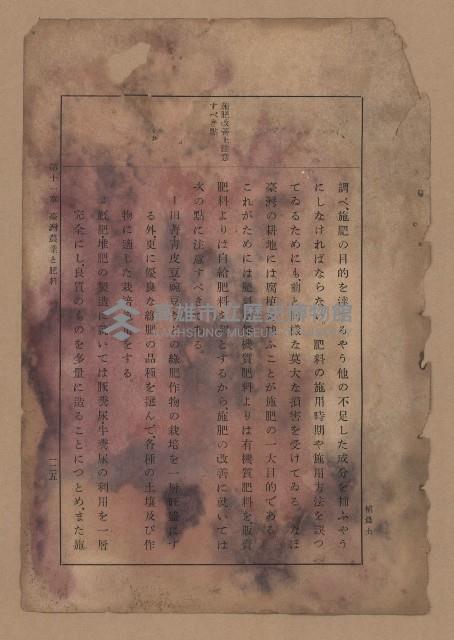 施肥改善上注意
すべき點
調べ、施肥の目的を達しうるやう他の不足した成分を補ふやう
にしなければならない。肥料の施用時期や施用方法を誤つ
てゐるためにも前 樣な莫大な損害を受けてゐる。なほ
臺灣の耕地には腐植 ふことが施肥の一大目的である
これがためには肥料 機質肥料よりは有機質肥料を販賣
肥料よりは自給肥料を とするから、施肥の改善に就いては
次の點に注意すべ る
1 田菁靑皮豆豌豆 の綠肥作物の栽培を一層旺盛にす
る外、更に優良な綠肥の品種を選んで、各種の土壤及び作
物に適した栽培 をする。
2 厩肥堆肥の製造に いては豚糞尿、牛糞尿の利用を一層
完全にし、良質のものを多量に造ることにつとめ、また施
第十 章 臺灣農業と肥料
一二五
高雄市立歷史博物館
KAOHSIUNG MUSEUM